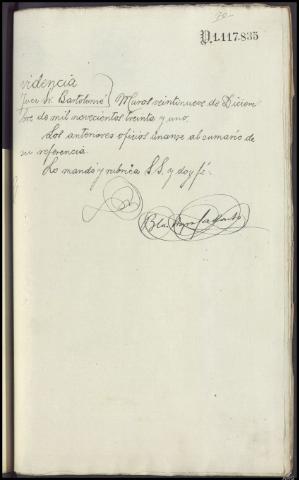 D1.117.835
videncia
Juez Sr. Bartolomé } Muros veintinueve de Diciem
bre de mil novecientos treinta y uno.
Los anteriores oficios únanse al sumario de
su referencia.
Lo mandó y rubrica S.S. y doy fé.